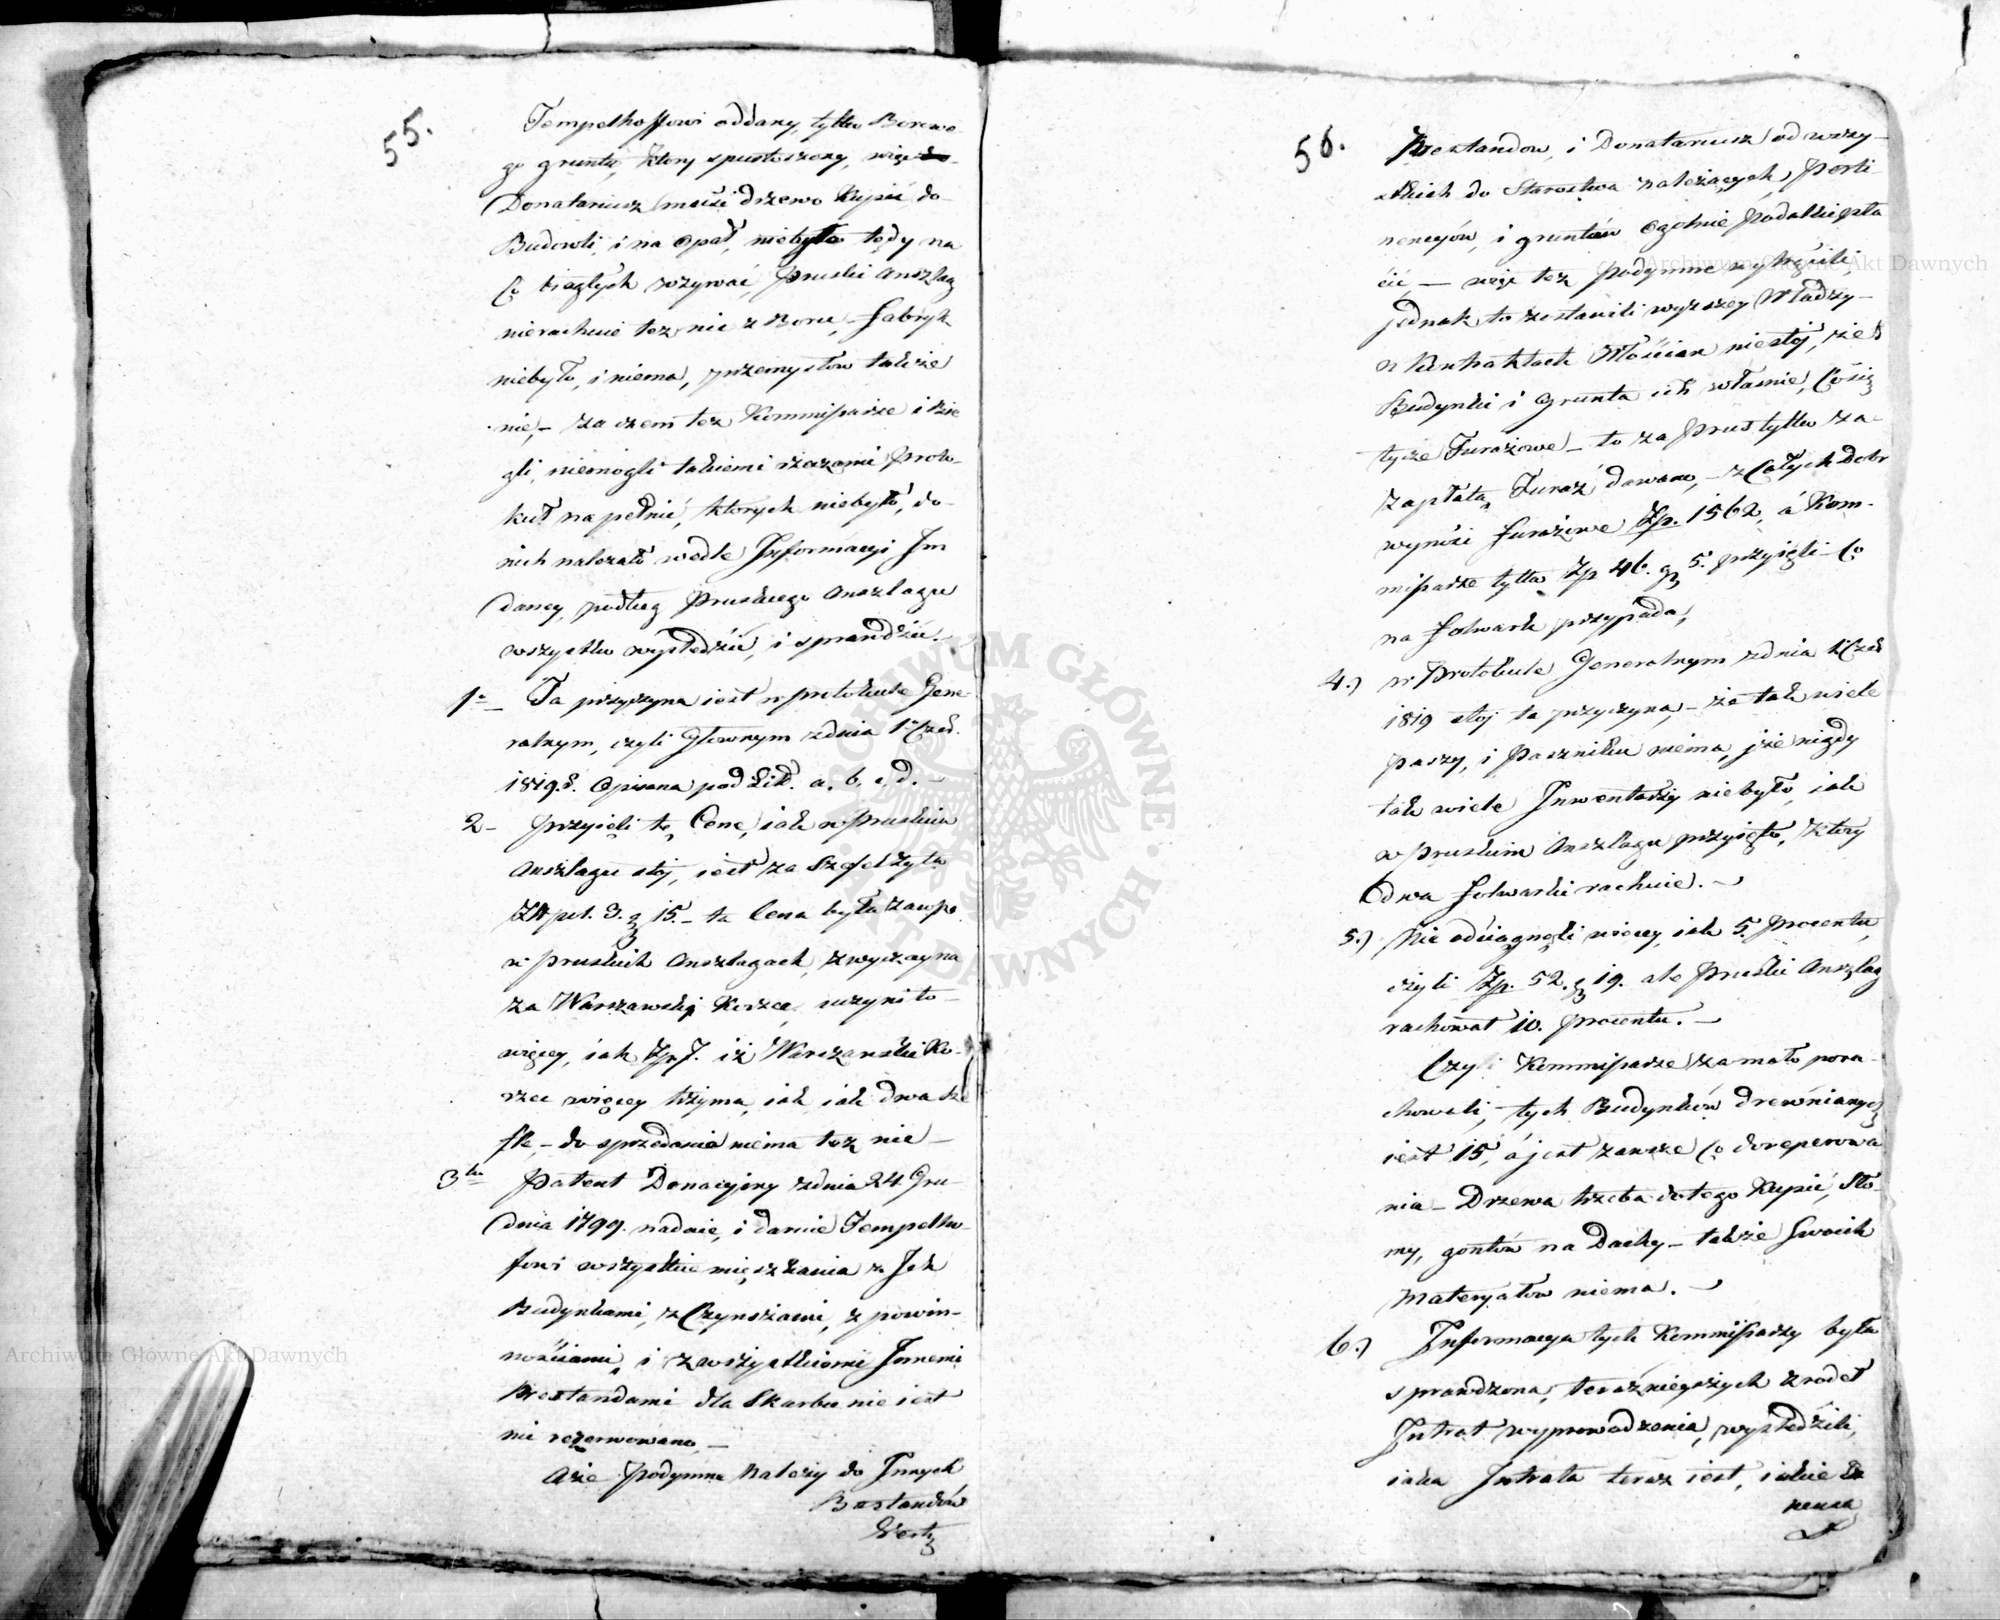 55.
Tempelhoffowi oddany, tylko Borowe
go gruntu, ktory spustoszony, więc
Donatariusz musi drzewo kupić do
Budowli, i na opał, niebyło tedy na
Co biegłych wzywać, Pruski Anszlag
nierachuie tez nic z Boru, – Fabryk
niebyło, i niema, przemysłow także
nie, – za czem tez Kommissarze i Bie
gli, niemogli takiemi rzeczami Proto-
kuł napełnić, ktorych niebyło, do
nich nalezało wedle Informacyi Im
daney, podług Pruskiego Anszlagu
wszystko wyśledzić, i sprawdzić. –
1o Ta przyczyna iest w protokule Gene-
ralnym, czyli Głownym zdnia 1o Czer.
1819.r. Opisana pod Lit. a. b. c. d. –
2– Przyieli tę Cenę, iak w Pruskim
Anszlagu stoj, iest za Szefel Zyta
Złpol. 3. g 15. – ta Cena była zawsze
w Pruskich Anszlagach, zwyczayna
za Warszawskj Korzec, uczyni to –
więcey, iak Zp 7. iż Warszawski Ko-
rzec więcey trzyma, iak iak dwa Sze
fle, – do sprzedania niema tez nic –
3tio Patent Donacyiny zdnia 24 Gru-
dnia 1799. nadaie, i daruie Tempelho-
fowi wszystkie mięszkania z Jch
Budynkami, z Czynszami, z powin-
nościami, i zwszystkiemi Jnnemi
Bestandami dla Skarbu nie iest
nic rezerwowano, –
Aże Podymne należy do Jnnych
Bestandów
Vertz
56.
Bestandow, i Donatariusz od wszy-
stkich do Starostwa należących, Perti-
nencyów, i gruntów Ogolnie Podatki pła
cić, – więc tez Podymne wytrącili,
jednak to zostawili wyzszey Władzy –
w Kontraktach Włościan niestoj, że
Budynki i Grunta ich własnie, Cosię
tycze Furażowe – to za Prus tylko za
Zapłatą Furaż dawano, – z Całych Dobr
wynosi furażowe Zp. 1562, a Kom-
missarze tylko Zp 46. g 5. przyięli – Co
na folwark przypada,
4.) w Protokule Generalnym zdnia 1 Czer
1819 stoj ta przyczyna, – że tak wiele
paszy, i Paszniku niema, że nigdy
tak wiele Inwentarzy niebyło, iak
w Pruskim Anszlagu przyięto, ktory
dwa folwarki rachuie. –
5.) Nie odciągneli więcey, iak 5. Procentu,
czyli Zp. 52. g 19. ale Pruski Anszlag
rachował 10. Procentu. –
Czyli Kommissarze za mało pora-
chowali, tych Budynków drewnianych
iest 15, a jest zawsze Co doreperowa
nia – Drzewa trzeba do tego kupić, Sło-
my, gontów na Dachy – także Swoich
Materyałow niema. –
6.) Informacya tych Kommissarzy była
sprawdzona, teraźnieyszych zrodeł
Intrat wyprowadzenia, wyśledzili,
iaka Intrata teraz iest, iakie
Archiwum Główne Akt Dawnych
Archiwum Główne Akt Dawnych
ARCHIWUM GŁÓWNE AKT DAWNYCH